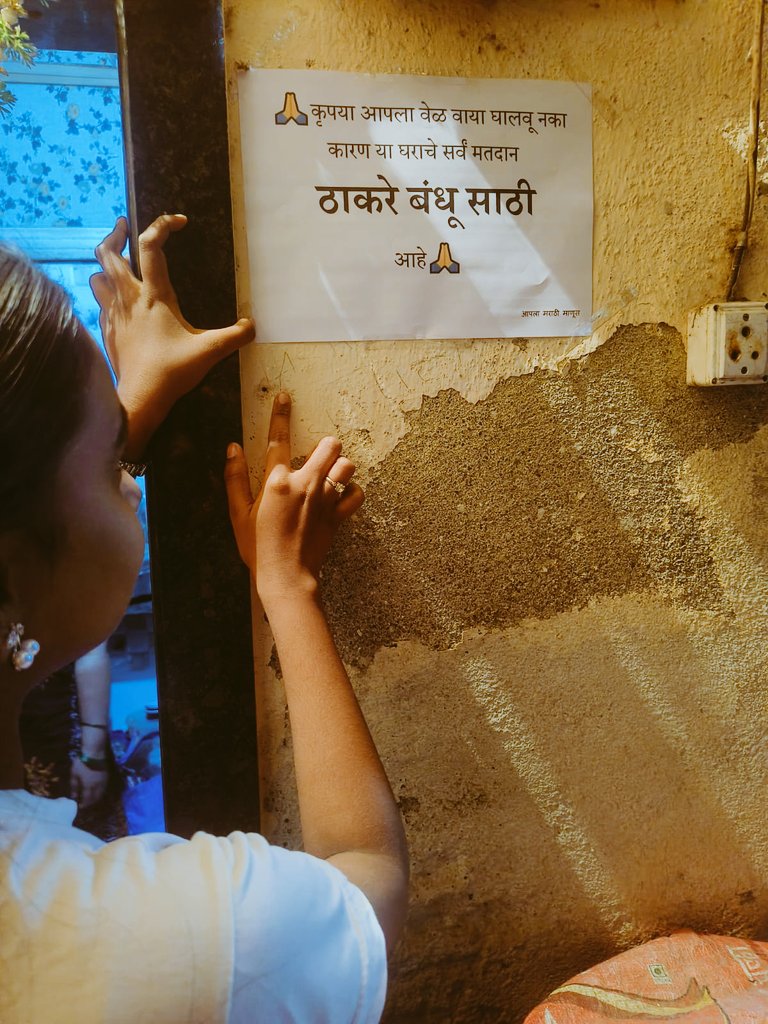 🙏कृपया आपला वेळ वाया घालवू नका
कारण या घराचे सर्वं मतदान
ठाकरे बंधू साठी
आहे🙏
आपला मराठी माणूस